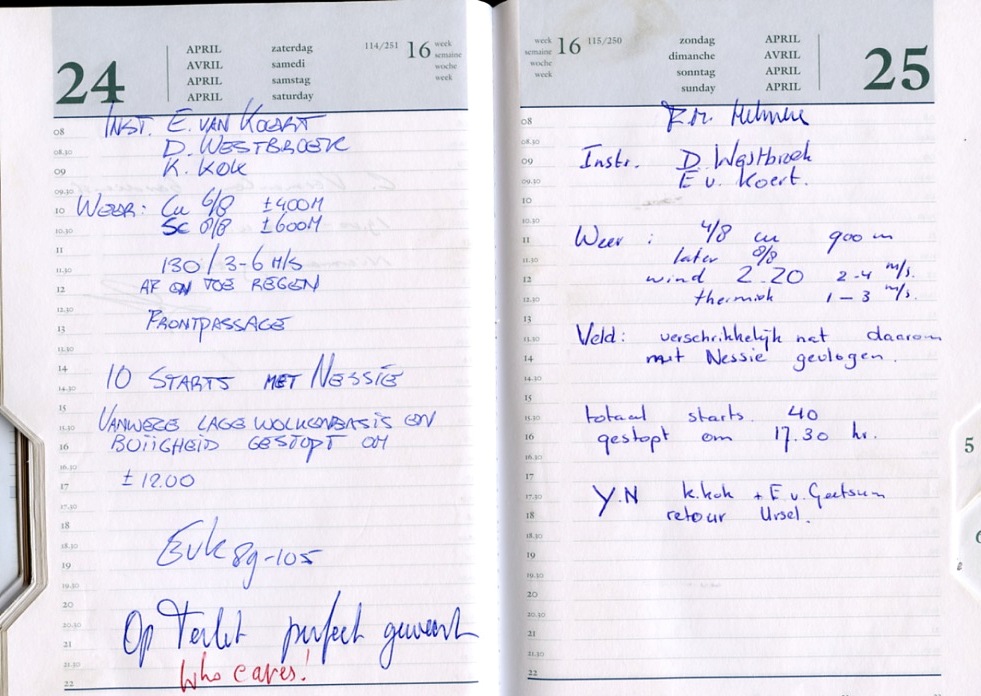 24
APRIL zaterdag 114/251 16 week
AVRIL samedi semaine
APRIL samstag woche
APRIL saturday week
08 INST. E. VAN KOERT
08.30 D. WESTBROEK
09 K. KOK
09.30
10 WEER: Cu 6/8 ±400M
10.30 Sc 8/8 ±600M
11
11.30 130 / 3-6 M/S
12 AF EN TOE REGEN
12.30
13 FRONTPASSAGE
13.30
14 10 STARTS MET NESSIE
14.30
15 VANWEGE LAGE WOLKENBASIS EN
15.30 BUIIGHEID GESTOPT OM
16
16.30 ± 12.00
17
17.30
18
18.30 EvK 89-105
19
19.30
20
20.30 Op Terlet perfect geweest
21
21.30 Who cares!
22
week 16 115/250 zondag APRIL
semaine dimanche AVRIL
woche sonntag APRIL
week sunday APRIL
25
08
08.30
09 Instr. D. Westbroek
09.30 E v. Koert.
10
10.30
11 Weer : 4/8 cu 900 m
11.30 later 8/8
12 wind 220 2-4 m/s.
12.30 thermiek 1-3 m/s.
13
13.30 Veld: verschrikkelijk nat daarom
14 met Nessie gevlogen.
14.30
15
15.30 totaal starts 40
16 gestopt om 17.30 hr.
16.30
17
17.30 Y.N K.kok + E.v.
18 retour Ursel.
18.30
19
19.30
20
20.30
21
21.30
22
5
6